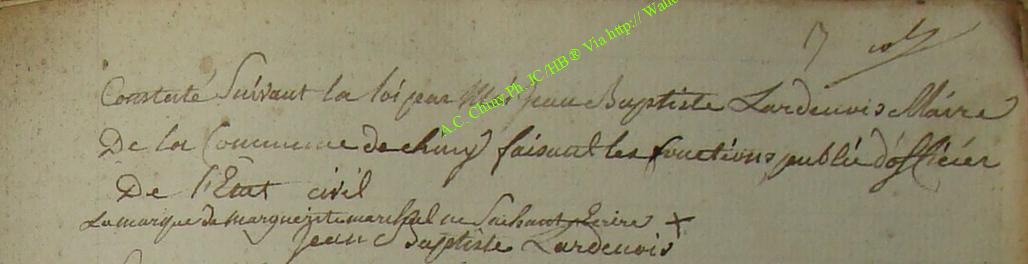 Constaté Suivant la loi par Moi Jean Baptiste Lardenois Maire
De la Commune de chiny faisant les fonctions publié d'officier
De l'Etat civil
La marque de marguerite marechal ne Sachant Ecrire X
Jean Baptiste Lardenois
A.C. Chiny Ph. JC/HB® Via http://